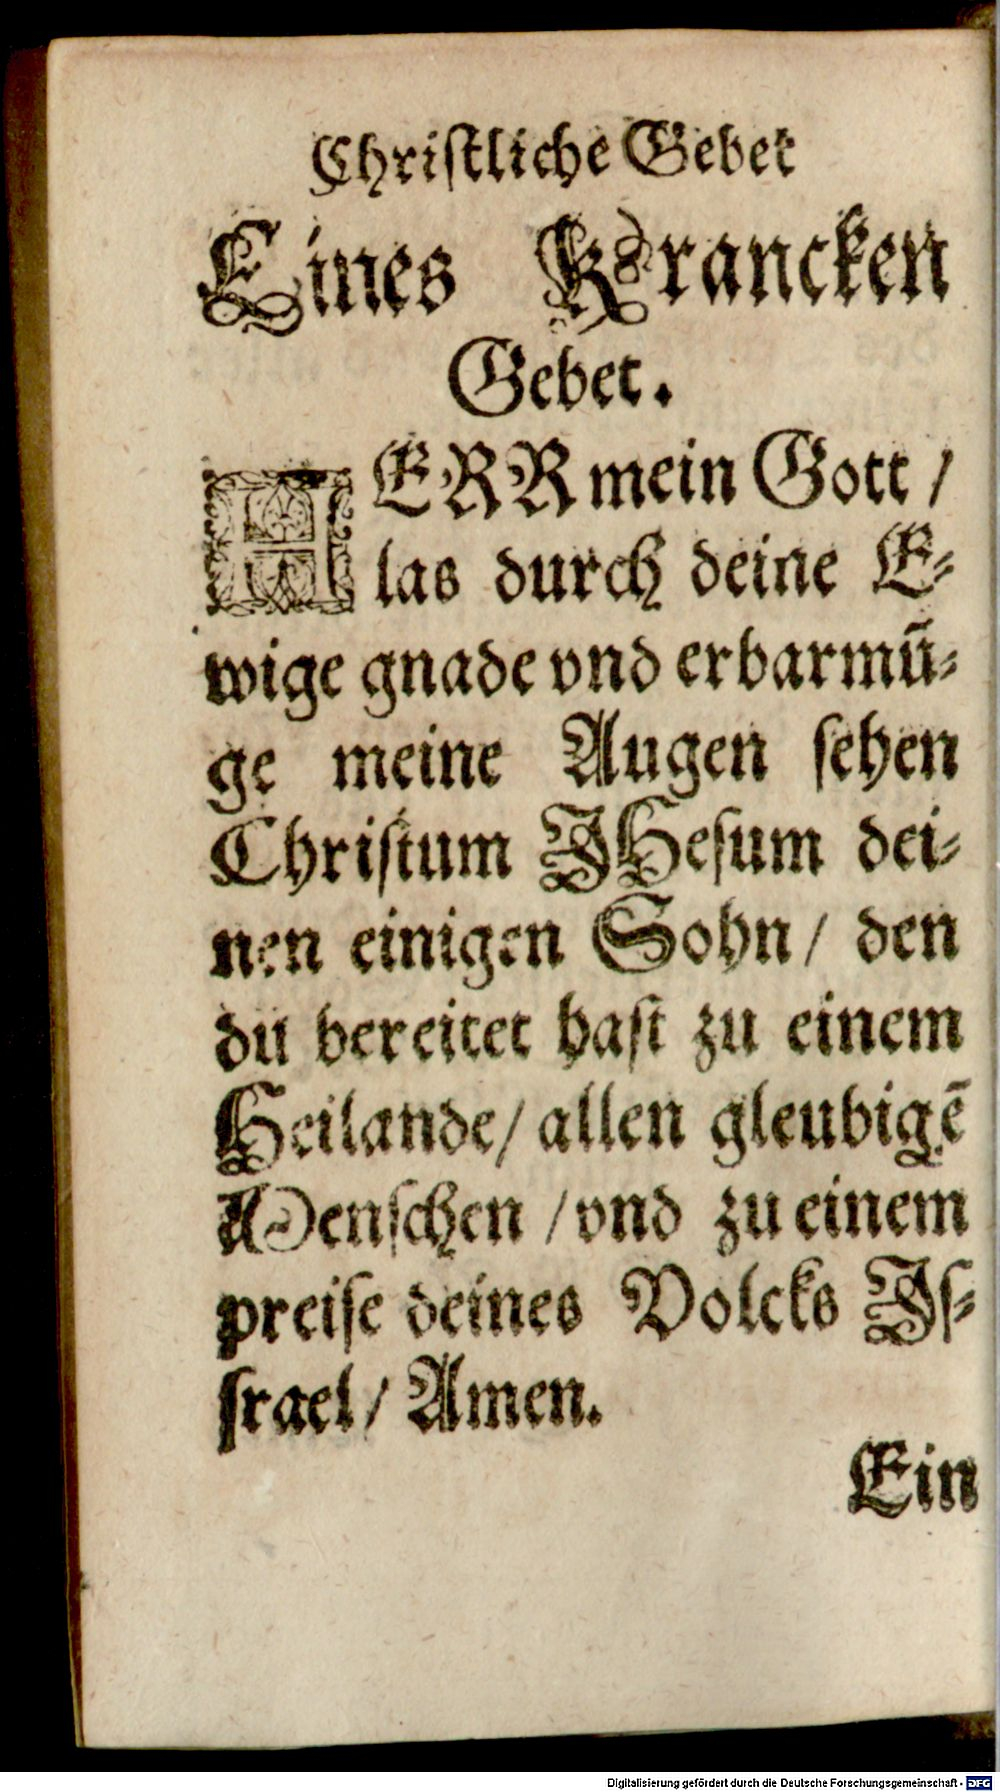 Chriſtliche Gebet
Eines Krancken
Gebet.
HERR mein Gott /
las durch deine E⸗
wige gnade vnd erbarmũ⸗
ge meine Augen ſehen
Chriſtum JHeſum dei⸗
nen einigen Sohn / den
du bereitet haſt zu einem
Heilande / allen gleubigẽ
Menſchen / vnd zu einem
preiſe deines Volcks Jſ⸗
ſrael / Amen.
Ein
Digitalisierung gefördert durch die Deutsche Forschungsgemeinschaft - DFG